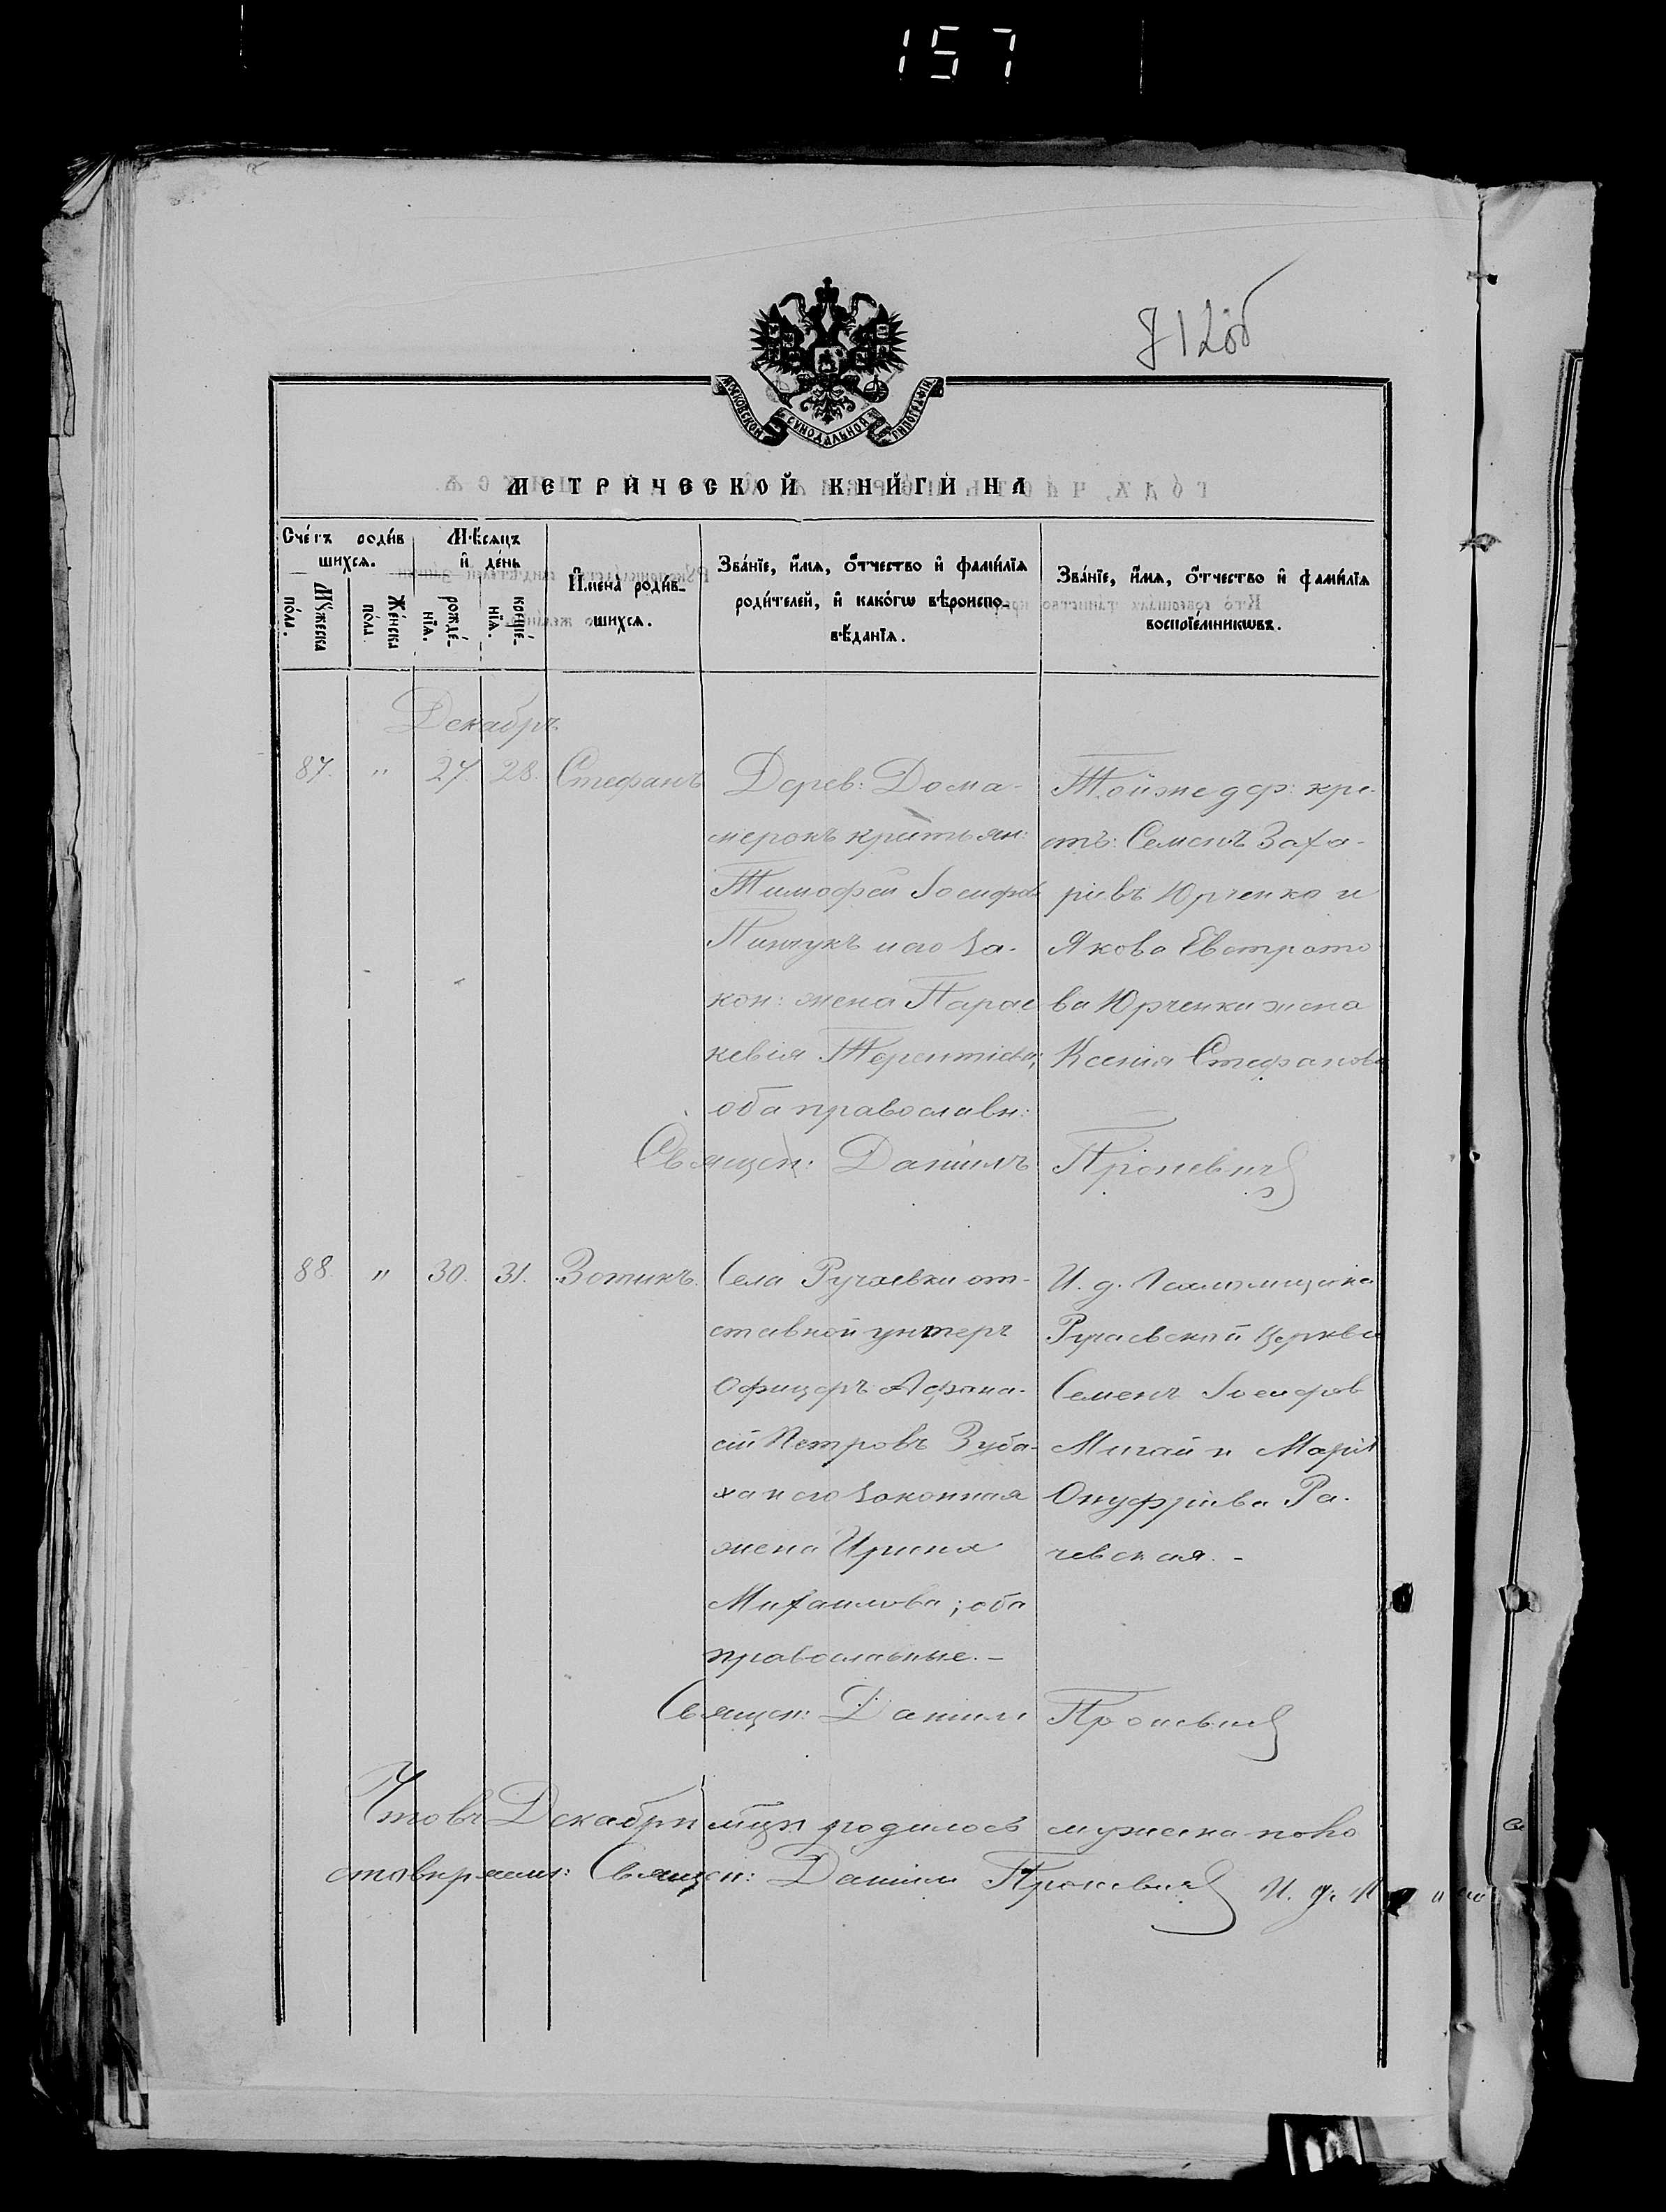 157
712об
МОСКОВСКОЙ СѴНОДАЛЬНОЙ ТИПОГРАФІИ
МЕТРИ́ЧЕСКОЙ КНИ́ГИ НА
Сче́тъ роди́вшихсѧ.
Мꙋ́жеска по́ла.
Же́нска по́ла
Мѣ́сѧцъ и҆ де́нь
рожде́нїѧ.
креще́нїѧ.
И҆мена̀ роди́вшихсѧ.
Зва́нїе, и҆́мѧ, ѻ҆́тчество и҆ фами́лїѧ
роди́телей, и҆ како́гѡ вѣроиспо-
вѣ́данїѧ.
Зва́нїе, и҆́мѧ, ѻ҆́тчество и҆ фами́лїѧ
воспрїе́мникѡвъ.
Декабрь
87. " 27. 28. Стефанъ
Дерев: Дома-
мерокъ крестьян:
Тимофей Іосифовъ
Пинчукъ и его за-
кон: жена Парас
кевія Терентіева;
оба православн:
Тойже дер: кре-
ст: Семенъ Заха-
ріевъ Юрченко и
Якова Евстрато
ва Юрченки жена
Ксенія Стефанова
Священ: Даніилъ
88. " 30. 31. Зотикъ.
Села Ручаевки от-
ставной унтеръ
офицеръ Афана-
сій Петровъ Зуба-
ха и его законная
жена Ирина
Михаилова; оба
православные. -
И. д. Псаломщика
Ручаевской Церкви
Семенъ Іосифов
Мигай и Марія
Онуфріева Ра-
чевская. -
Священ: Даніилъ
Что въ Декабрѣ мцѣ родилось мужеска пола
Священ: Даніилъ И. д.